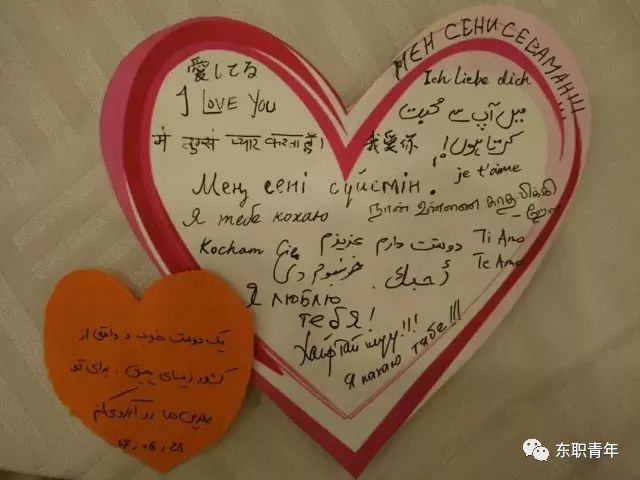 МЕН СЕНИ СЕВАМАН!!!
愛してる
Ich liebe dich
I LOVE YOU
میں آپ سے محبت
کرتا ہوں!
मैं तुमसे प्यार करता हूँ।
我爱你
je t'aime
Мең сені сүйемін.
Я тебе кохаю
நான் உன்னை காதலிக்கி
Kocham Cię
دوست دارم عزیزم
Ti Amo
أحبك.
Te Amo
Я люблю
тебя!
Хайртай шүү!!!
Я кахаю тябе!!!
یک دوست خوب و واقعی از
کشور زیبای چین. برای تو
بهترین ها رو آرزو می‌کنم
东职青年